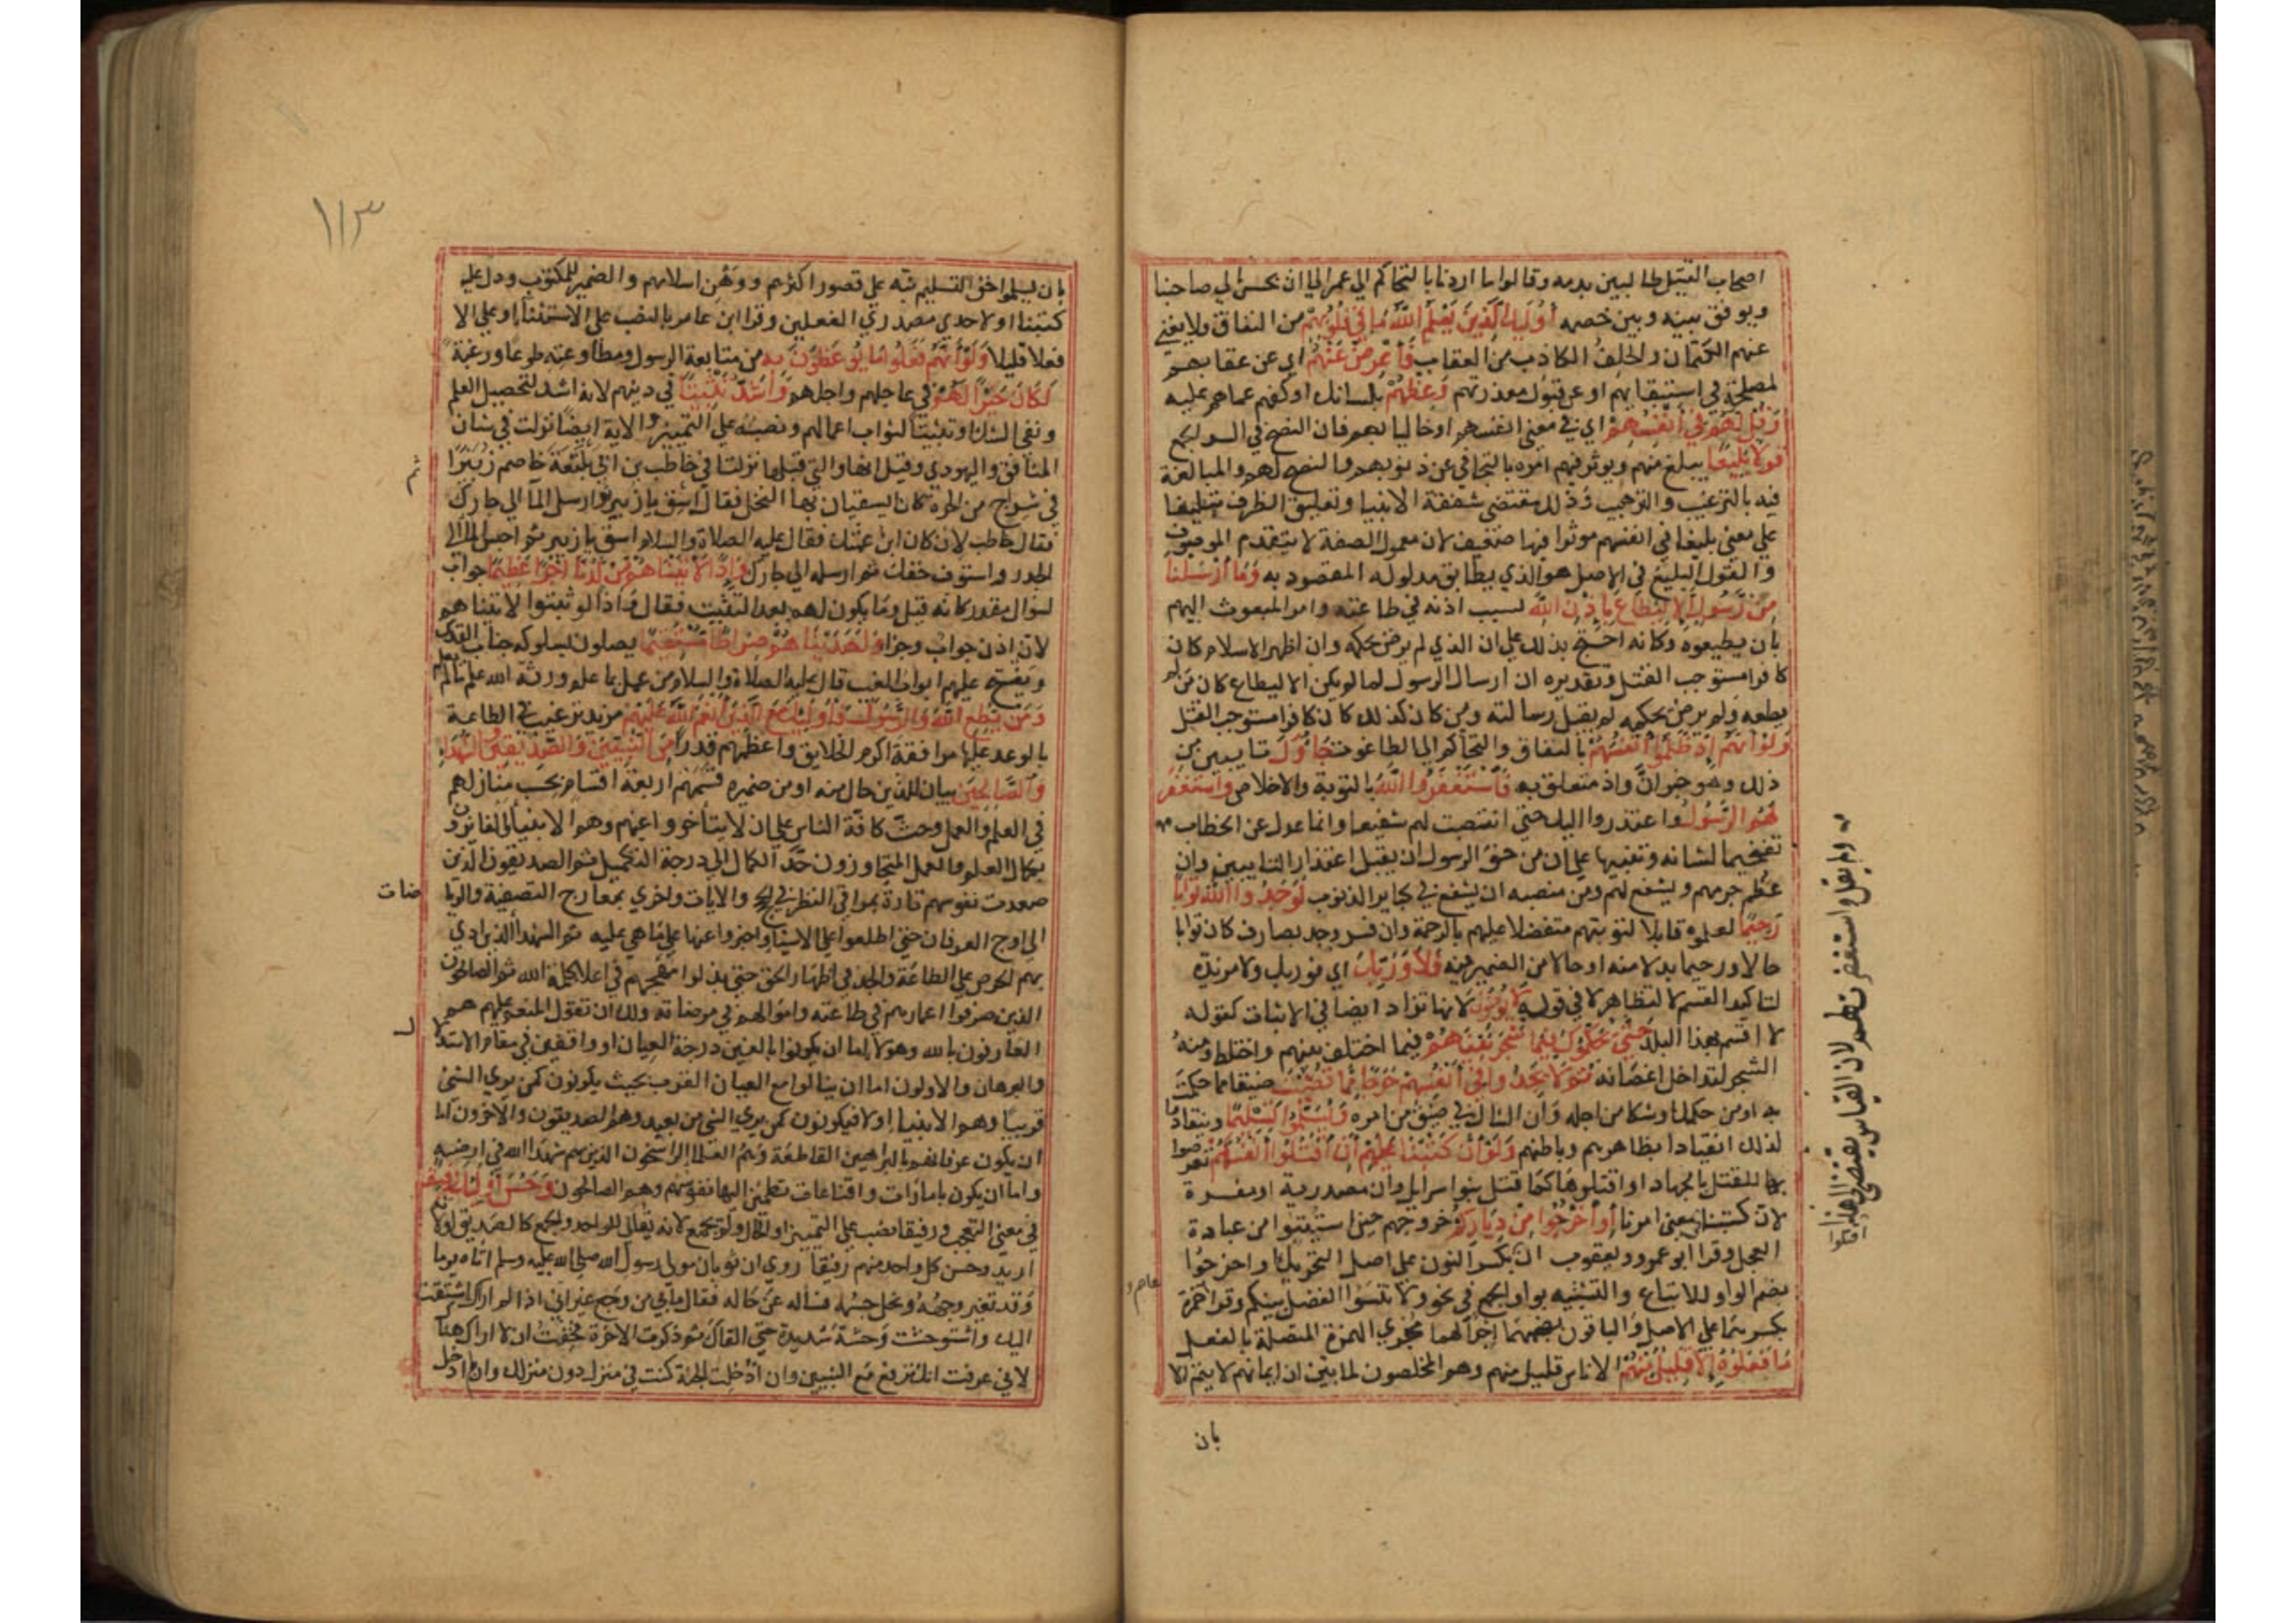 اصحاب القتيل طالبين بدمه وقالوا ما اردنا بالتحاكم الي عمر الا ان يحسن الي صاحبنا
ويوفق بينه وبين خصمه أُولَئِكَ الَّذِينَ يَعْلَمُ اللَّهُ مَا فِي قُلُوبِهِمْ من النفاق ولا يغني
عنهم الكتمان والحلف الكاذب من العقاب فَأَعْرِضْ عَنْهُمْ اي عن عقابهم
لمصلحة في استبقايهم او عن قبول معذرتهم وَعِظْهُمْ بلسانك او كفهم عما هم عليه
وَقُل لَّهُمْ فِي أَنفُسِهِمْ اي في معني انفسهم او خاليا بهم فان النصح في السر انجع
قَوْلًا بَلِيغًا يبلغ منهم ويوثر فيهم امره بالتجافي عن ذنوبهم والنصح لهم والمبالغة
فيه بالترغيب والترهيب وذلك مقتضي شفقة الانبيا وتعليق الظرف ببليغا
علي معني بليغا في انفسهم موثرا فيها ضعيف لان معمول الصفة لا يتقدم الموصوف
والقول البليغ في الاصل هو الذي يطابق مدلوله المقصود به وَمَا أَرْسَلْنَا
مِن رَّسُولٍ إِلَّا لِيُطَاعَ بِإِذْنِ اللَّهِ بسبب اذنه في طاعته وامر المبعوث اليهم
بان يطيعوه وكانه احتج بذلك علي ان الذي لم يرض بحكمه وان اظهر الاسلام كان
كافرا مستوجب القتل وتقديره ان ارسال الرسول لما لم يكن الا ليطاع كان من لم
يطعه ولم يرض بحكمه لم يقبل رسالته ومن كان كذلك كان كافرا مستوجب القتل
وَلَوْ أَنَّهُمْ إِذ ظَّلَمُوا أَنفُسَهُمْ بالنفاق والتحاكم الي الطاغوت جَاؤُوكَ تايبين من
ذلك وهو خبر ان واذ متعلق به فَاسْتَغْفَرُوا اللَّهَ بالتوبة والاخلاص وَاسْتَغْفَرَ
لَهُمُ الرَّسُولُ واعتذروا اليك حتي انتصبت لهم شفيعا وانما عدل عن الخطاب
تفخيما لشانه وتنبيها علي ان من حق الرسول ان يقبل اعتذار التايبين وان
عظم جرمهم ويشفع لهم ومن منصبه ان يشفع في كباير الذنوب لَوَجَدُوا اللَّهَ تَوَّابًا
رَّحِيمًا لعلموه قابلا لتوبتهم متفضلا عليهم بالرحمة وان فسر وجد بصادف كان توابا
حالا ورحيما بدلا منه او حالا من الضمير فيه فَلَا وَرَبِّكَ اي فوربك ولا مزيدة
لتاكيد القسم لا لتظاهر لا في قوله لَا يُؤْمِنُونَ لانها تزاد ايضا في الاثبات كقوله
لا اقسم بهذا البلد حَتَّى يُحَكِّمُوكَ فِيمَا شَجَرَ بَيْنَهُمْ فيما اختلف بينهم واختلط ومنه
الشجر لتداخل اغصانه ثُمَّ لَا يَجِدُوا فِي أَنفُسِهِمْ حَرَجًا مِّمَّا قَضَيْتَ ضيقا مما حكمت
به او من حكمك او شكا من اجله فان الشاك في ضيق من امره وَيُسَلِّمُوا تَسْلِيمًا وينقادوا
لذلك انقيادا بظاهرهم وباطنهم وَلَوْ أَنَّا كَتَبْنَا عَلَيْهِمْ أَنِ اقْتُلُوا أَنفُسَكُمْ تعرضوا
بها للقتل بالجهاد او اقتلوها كما قتل بنوا سرايل وان مصدرية او مفسرة
لان كتبنا في معني امرنا أَوِ اخْرُجُوا مِن دِيَارِكُم خروجهم حين استتيبوا من عبادة
العجل وقرا ابو عمرو ويعقوب ان بكسر النون علي اصل التحريك او اخرجوا
بضم الواو للاتباع والتشبيه بواو الجمع في نحو ولا تنسوا الفضل بينكم وقرا حمزة
بكسرهما علي الاصل والباقون بضمهما اجراء لهما مجري الهمزة المتصلة بالفعل
مَا فَعَلُوهُ إِلَّا قَلِيلٌ مِّنْهُمْ الا ناس قليل منهم وهم المخلصون لما بين ان ايمانهم لا يتم الا
بان
ولم يقل واستغفرت لهم لان القياس يقتضي هذا
عاصم و
١١٣
بان يسلموا حق التسليم نبه علي قصور اكثرهم ووهن اسلامهم والضمير للمكتوب ودل عليه
كتبنا او لاحدي مصدري الفعلين وقرا ابن عامر بالنصب علي الاستثنا او علي الا
فعلا قليلا وَلَوْ أَنَّهُمْ فَعَلُوا مَا يُوعَظُونَ بِهِ من متابعة الرسول ومطاوعته طوعا ورغبة
لَكَانَ خَيْرًا لَّهُمْ في عاجلهم واجلهم وَأَشَدَّ تَثْبِيتًا في دينهم لانه اشد لتحصيل العلم
ونفي الشك او تثبيتا لثواب اعمالهم ونصبه علي التمييز والاية ايضا نزلت في شان
المنافق واليهودي وقيل انها والتي قبلها نزلتا في حاطب بن ابي بلتعة خاصم زبيرا
في شراج من الحرة كانا يسقيان بها النخل فقال اسق يا زبير ثم ارسل الما الي جارك
فقال حاطب لان كان ابن عمتك فقال عليه الصلاة والسلام اسق يا زبير ثم احبس الما الي
الجدر واستوف حقك ثم ارسله الي جارك وَإِذًا لَّآتَيْنَاهُم مِّن لَّدُنَّا أَجْرًا عَظِيمًا جواب
لسوال مقدر كانه قيل وما يكون لهم بعد التثبيت فقال واذا لو ثبتوا لاتيناهم
لان اذن جواب وجزا وَلَهَدَيْنَاهُمْ صِرَاطًا مُّسْتَقِيمًا يصلون بسلوكه جناب القدس
ويفتح عليهم ابواب الغيب قال عليه الصلاة والسلام من عمل بما علم ورثه الله علم ما لم يعلم
وَمَن يُطِعِ اللَّهَ وَالرَّسُولَ فَأُولَئِكَ مَعَ الَّذِينَ أَنْعَمَ اللَّهُ عَلَيْهِم مزيد ترغيب في الطاعة
بالوعد عليها موافقة اكرم الخلايق واعظمهم قدرا مِّنَ النَّبِيِّينَ وَالصِّدِّيقِينَ وَالشُّهَدَاءِ
وَالصَّالِحِينَ بيان للذين حال منه او من ضميره قسمهم اربعة اقسام بحسب منازلهم
في العلم والعمل وحث كافة الناس علي ان لا يتاخروا عنهم وهم الانبيا الفايزون
بكمال العلم والعمل المتجاوزون حد الكمال الي درجة التكميل ثم الصديقون الذين
صعدت نفوسهم تارة بمراقي النظر في الحجج والايات واخري بمعارج التصفية والريا
ضات
الي اوج العرفان حتي اطلعوا علي الاشيا واخبروا عنها علي ما هي عليه ثم الشهدا الذين ادي
بهم الحرص علي الطاعة والجد في اظهار الحق حتي بذلوا مهجهم في اعلا كلمة الله ثم الصالحون
الذين صرفوا اعمارهم في طاعته واموالهم في مرضاته ولك ان تقول المنعم عليهم هم
العارفون بالله وهولا اما ان يكونوا بالغين درجة العيان او واقفين في مقام الاستد
والبرهان والاولون اما ان ينالوا مع العيان القرب بحيث يكونون كمن يري الشي
قريبا وهم الانبيا او لا فيكونون كمن يري الشي من بعيد وهم الصديقون والاخرون اما
ان يكون عرفانهم بالبراهين القاطعة وهم العلما الراسخون الذين هم شهدا الله في ارضه
واما ان يكون بامارات واقناعات تطمئن اليها نفوسهم وهم الصالحون وَحَسُنَ أُولَئِكَ رَفِيقًا
في معني التعجب ورفيقا نصب علي التمييز او الحال ولم يجمع لانه يقال للواحد والجمع كالصديق او لانه
اريد وحسن كل واحد منهم رفيقا روي ان ثوبان مولي رسول الله صلي الله عليه وسلم اتاه يوما
وقد تغير وجهه ونحل جسمه فساله عن حاله فقال ما بي من وجع غير اني اذا لم ارك اشتقت
اليك واستوحشت وحشة شديدة حتي القاك ثم ذكرت الاخرة فخفت ان لا اراك هناك
لاني عرفت انك ترتفع مع النبيين وان ادخلت الجنة كنت في منزل دون منزلك وان لم ادخل